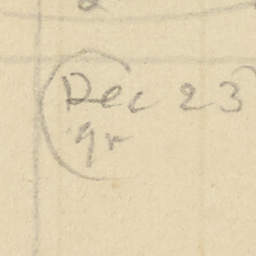 Dec 23
9r